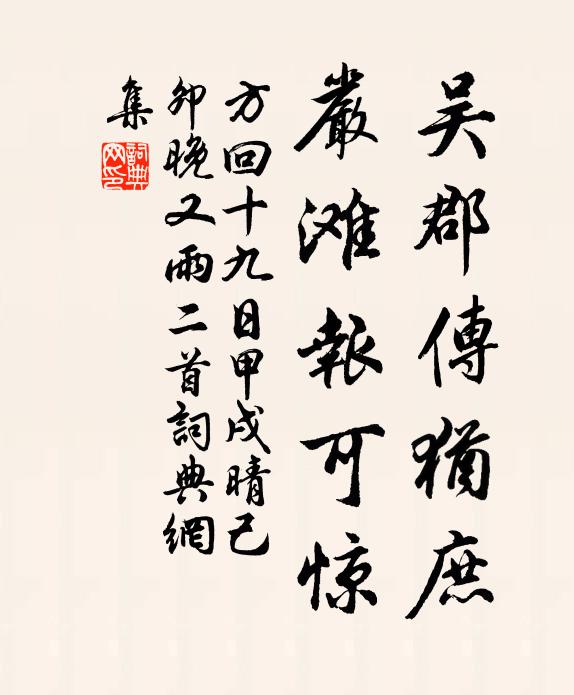 吴郡傳猶庶
嚴滩報可惊
方回十九日甲戌晴己
卯晚又雨二首詞典網
集
詞典
网印